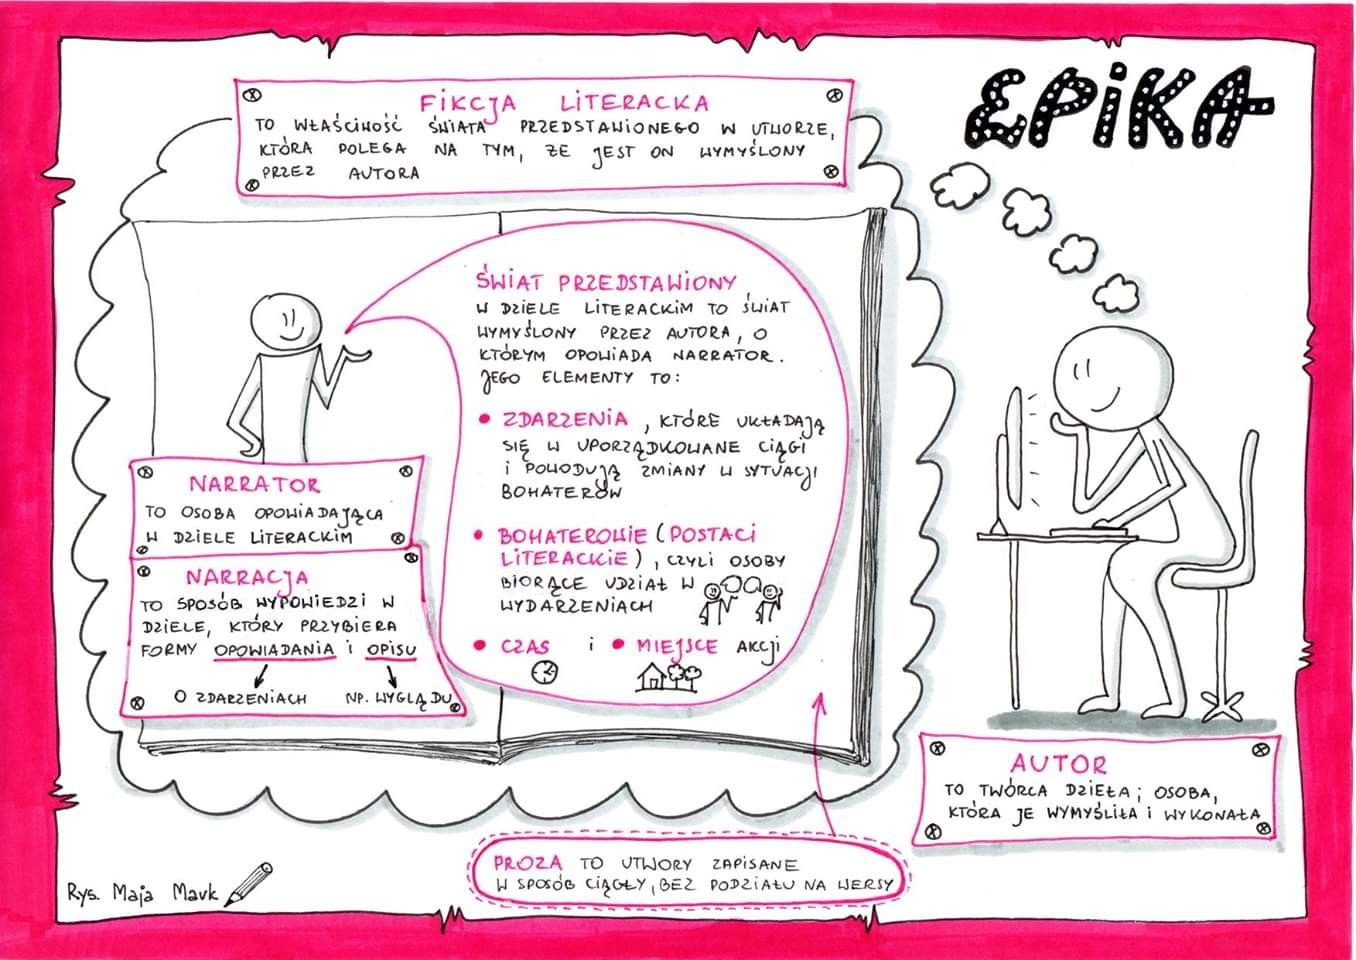 EPIKA
FIKCJA LITERACKA
TO WŁAŚCIWOŚĆ ŚWIATA PRZEDSTAWIONEGO W UTWORZE,
KTÓRA POLEGA NA TYM, ŻE JEST ON WYMYŚLONY
PRZEZ AUTORA
ŚWIAT PRZEDSTAWIONY
W DZIELE LITERACKIM TO ŚWIAT
WYMYŚLONY PRZEZ AUTORA, O
KTÓRYM OPOWIADA NARRATOR.
JEGO ELEMENTY TO:
• ZDARZENIA, KTÓRE UKŁADAJĄ
SIĘ W UPORZĄDKOWANE CIĄGI
I POWODUJĄ ZMIANY W SYTUACJI
BOHATERÓW
• BOHATEROWIE (POSTACI
LITERACKIE), CZYLI OSOBY
BIORĄCE UDZIAŁ W
WYDARZENIACH
• CZAS i • MIEJSCE AKCJI
NARRATOR
TO OSOBA OPOWIADAJĄCA
W DZIELE LITERACKIM
NARRACJA
TO SPOSÓB WYPOWIEDZI W
DZIELE, KTÓRY PRZYBIERA
FORMY OPOWIADANIA i OPISU
O ZDARZENIACH NP. WYGLĄDU
AUTOR
TO TWÓRCA DZIEŁA; OSOBA,
KTÓRA JE WYMYŚLIŁA I WYKONAŁA
PROZA TO UTWORY ZAPISANE
W SPOSÓB CIĄGŁY, BEZ PODZIAŁU NA WERSY
Rys. Maja Mavk